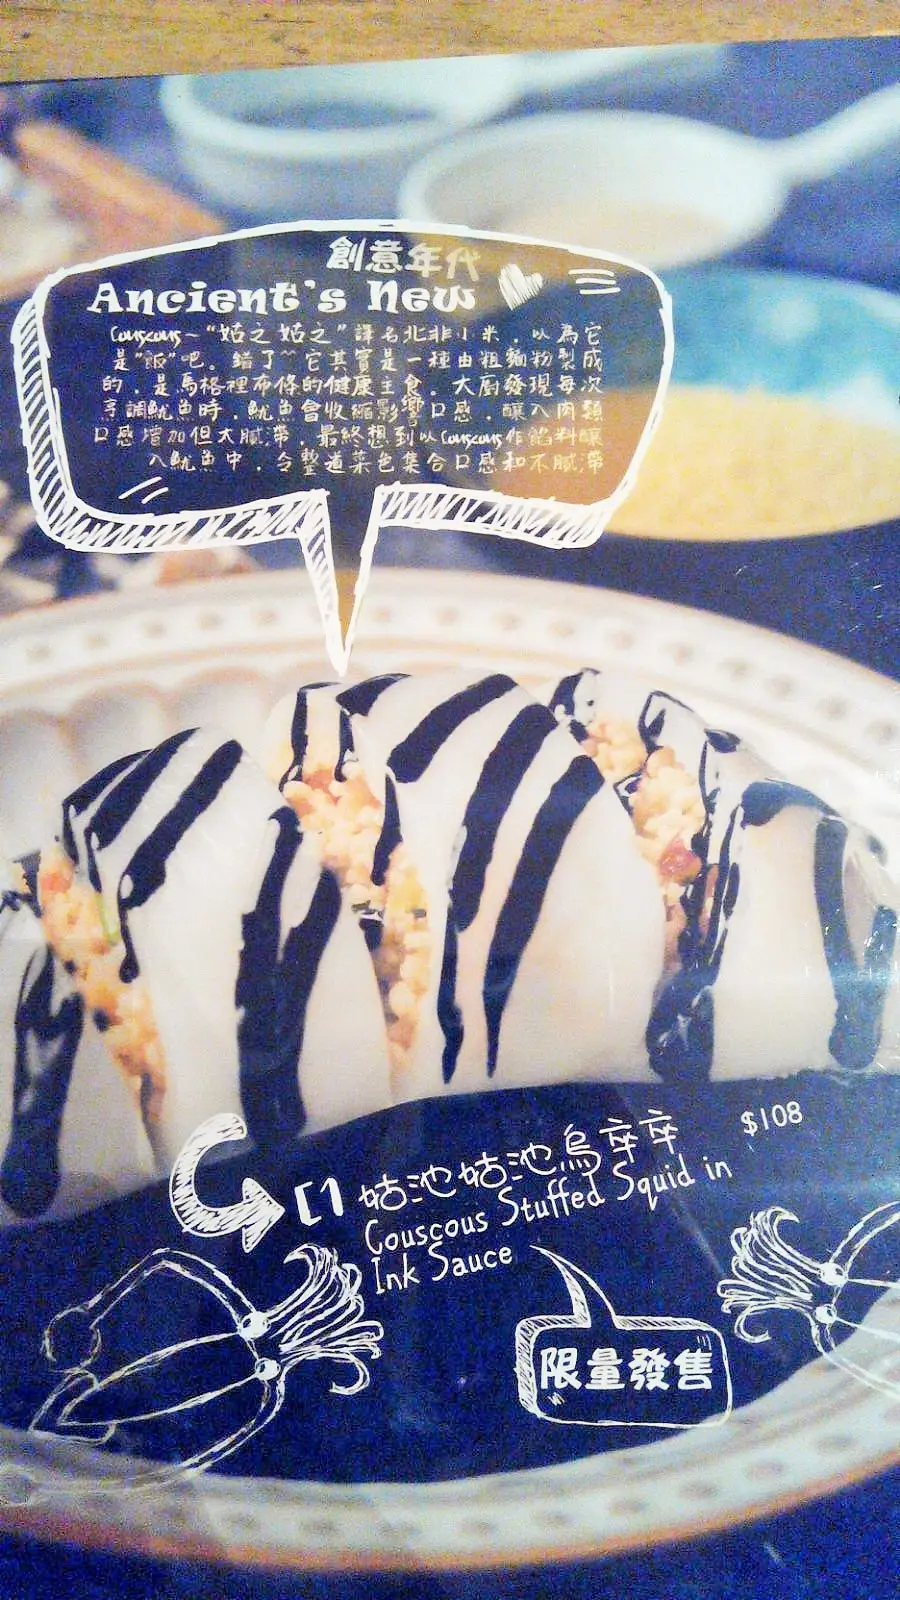 創意年代
Ancient's New
Couscous~"姑之姑之"譯名北非小米，以為它
是"飯"吧。錯了~~它其實是一種由粗麵粉製成
的，是馬格裡布條的健康主食。大廚發現每次
烹調魷魚時，魷魚會收縮影響口感，釀入肉類
口感增加但太膩滯，最終想到以Couscous作餡料釀
入魷魚中，令整道菜色集合口感和不膩滯
[1 姑池姑池烏卒卒 $108
Couscous Stuffed Squid in
Ink Sauce
限量發售